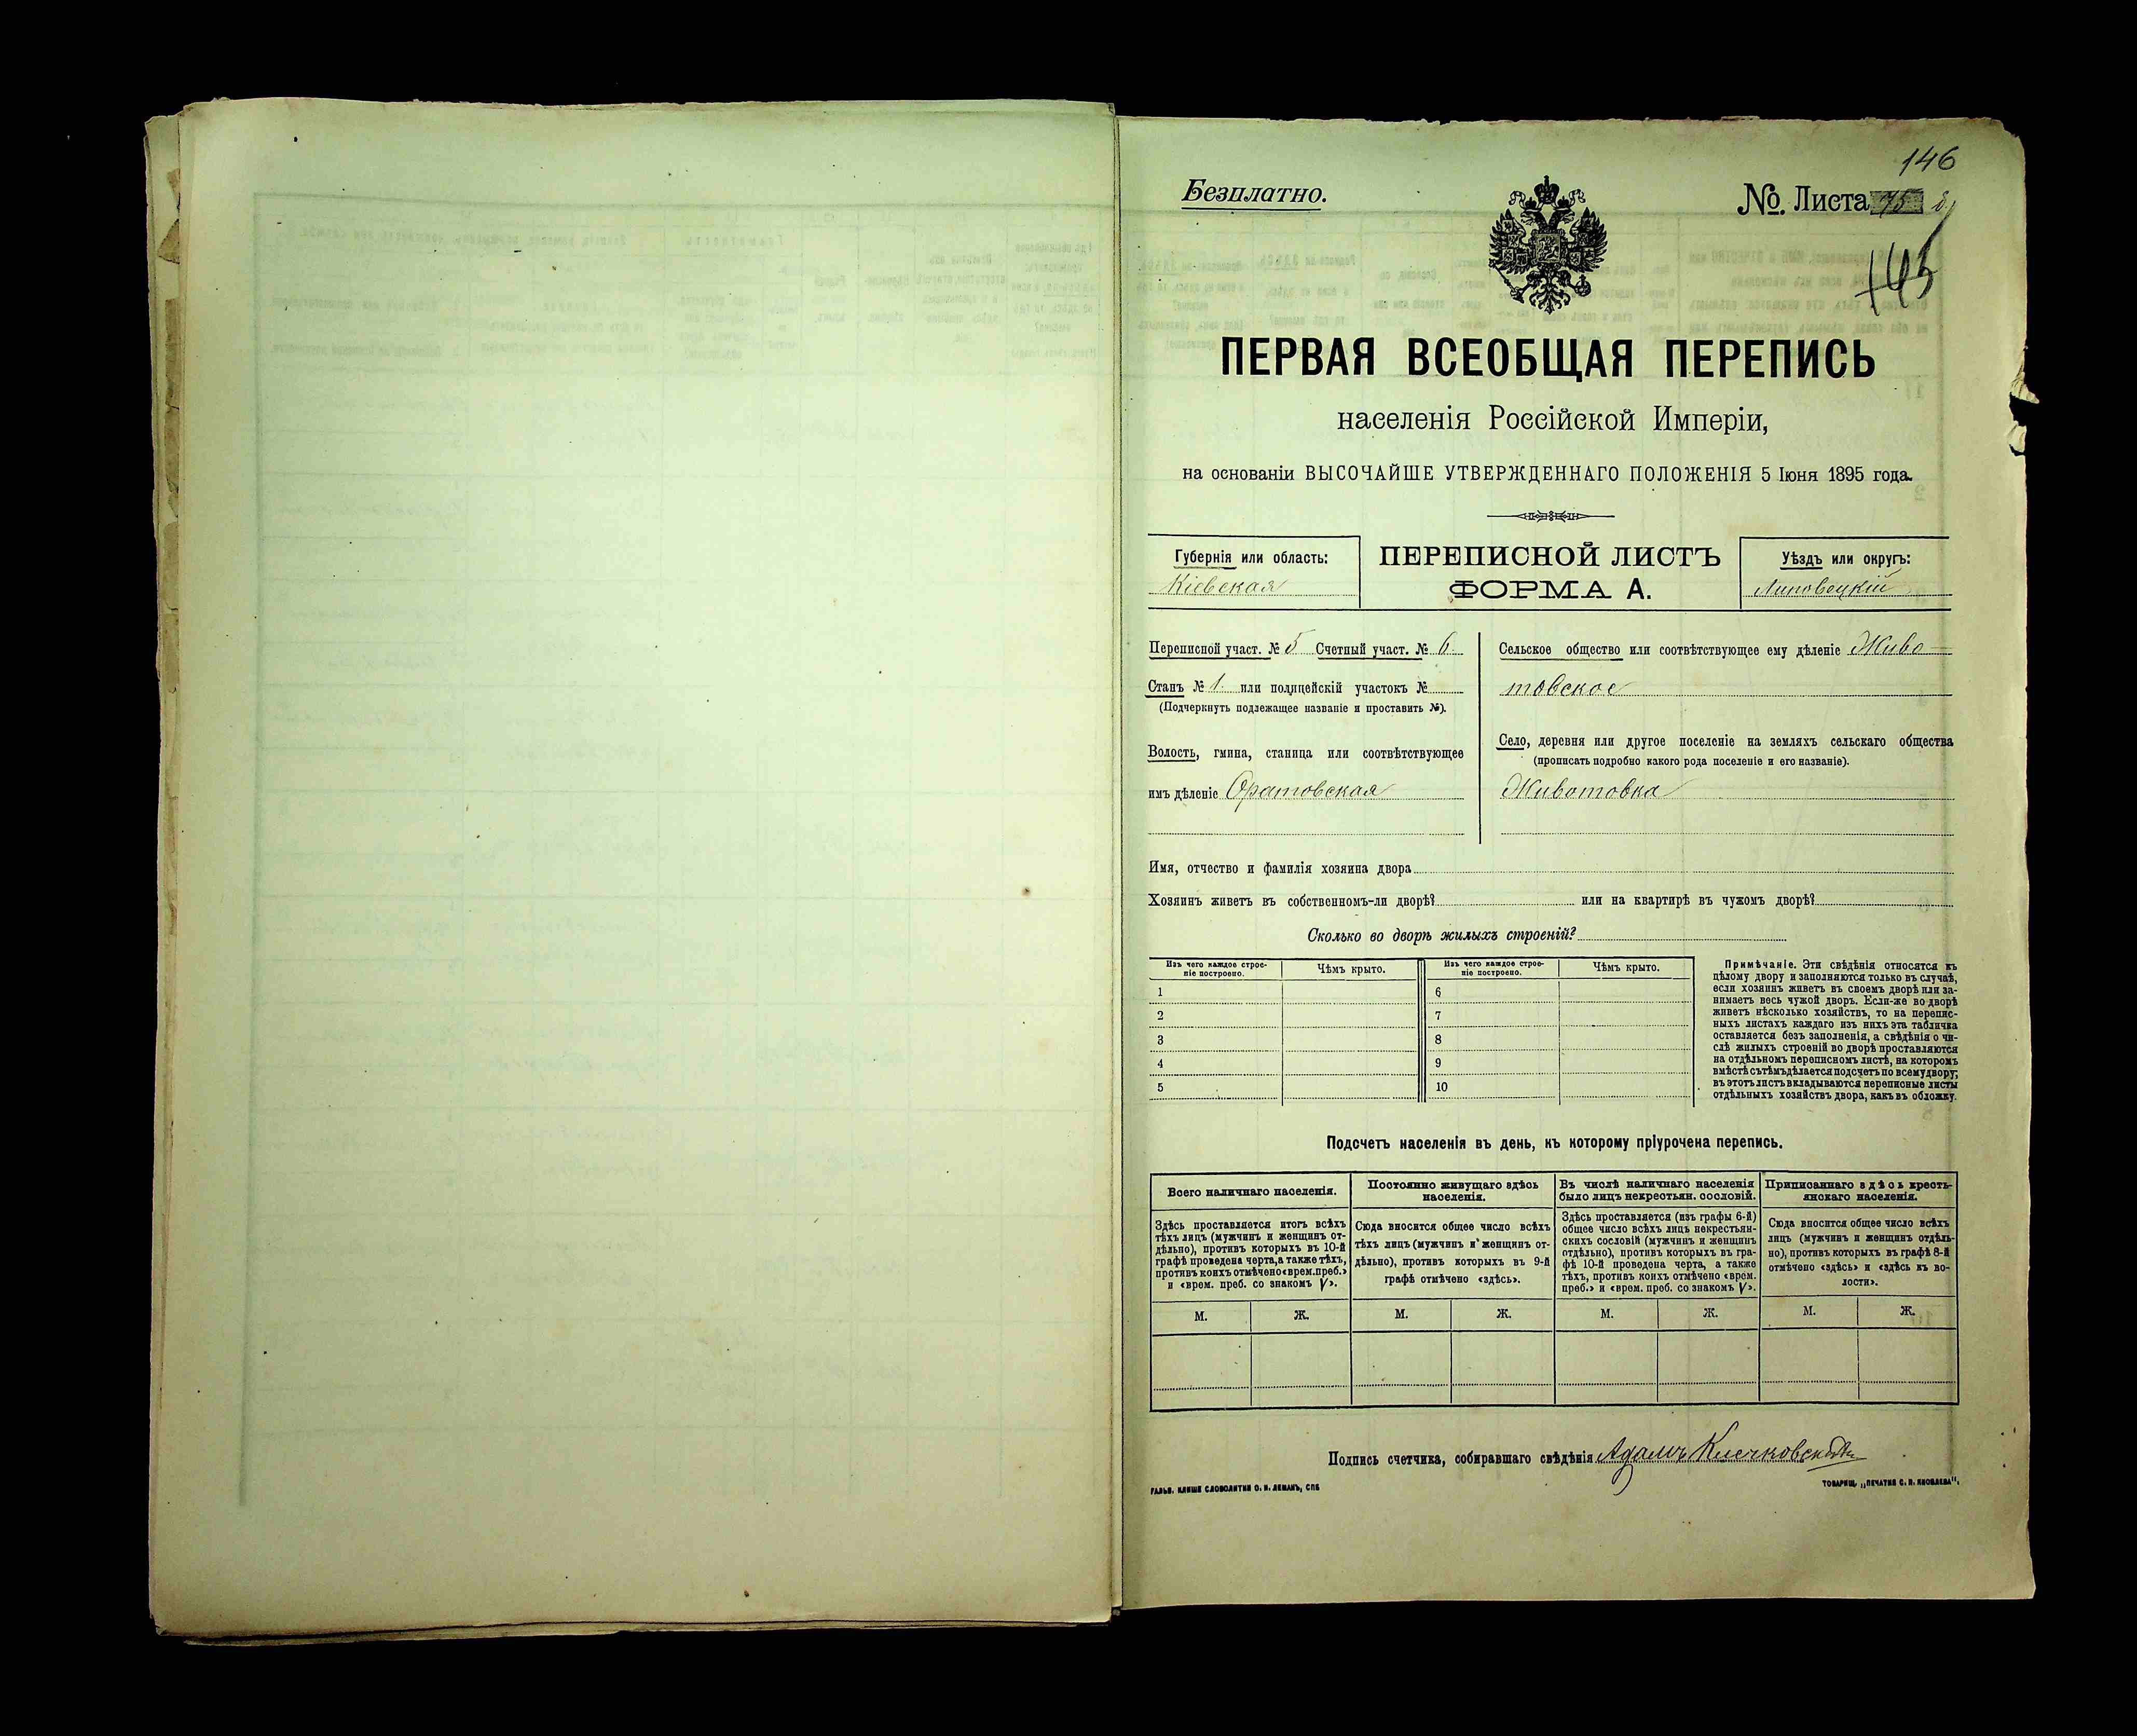 146
Безплатно.
№. Листа 75
145
ПЕРВАЯ ВСЕОБЩАЯ ПЕРЕПИСЬ
населенія Россійской Имперіи,
на основаніи ВЫСОЧАЙШЕ УТВЕРЖДЕННАГО ПОЛОЖЕНІЯ 5 Іюня 1895 года.
Губернія или область:
Кіевская
ПЕРЕПИСНОЙ ЛИСТЪ
ФОРМА А.
Уѣздъ или округъ:
Липовецкій
Переписной участ. № 5 Счетный участ. № 6
Станъ № 1 или полицейскій участокъ №
(Подчеркнуть подлежащее названіе и проставить №).
Волость, гмина, станица или соотвѣтствующее
имъ дѣленіе Оратовская
Сельское общество или соотвѣтствующее ему дѣленіе Живо-
товское
Село, деревня или другое поселеніе на земляхъ сельскаго общества
(прописать подробно какого рода поселеніе и его названіе).
Животовка
Имя, отчество и фамилія хозяина двора
Хозяинъ живетъ въ собственномъ-ли дворѣ? или на квартирѣ въ чужомъ дворѣ?
Сколько во дворѣ жилыхъ строеній?
Изъ чего каждое строе-
ніе построено.
Чѣмъ крыто.
Изъ чего каждое строе-
ніе построено.
Чѣмъ крыто.
1 6
2 7
3 8
4 9
5 10
Примѣчаніе. Эти свѣдѣнія относятся къ
цѣлому двору и заполняются только въ случаѣ,
если хозяинъ живетъ въ своемъ дворѣ или за-
нимаетъ весь чужой дворъ. Если-же во дворѣ
живетъ нѣсколько хозяйствъ, то на перепис-
ныхъ листахъ каждаго изъ нихъ эта табличка
оставляется безъ заполненія, а свѣдѣнія о чи-
слѣ жилыхъ строеній во дворѣ проставляются
на отдѣльномъ переписномъ листѣ, на которомъ
вмѣстѣ съ тѣмъ дѣлается подсчетъ по всему двору;
въ этотъ листъ вкладываются переписные листы
отдѣльныхъ хозяйствъ двора, какъ въ обложку.
Подсчетъ населенія въ день, къ которому пріурочена перепись.
Всего наличнаго населенія.
Здѣсь проставляется итогъ всѣхъ
тѣхъ лицъ (мужчинъ и женщинъ от-
дѣльно), противъ которыхъ въ 10-й
графѣ проведена черта, а также тѣхъ,
противъ коихъ отмѣчено «врем. преб.»
и «врем. преб. со знакомъ V».
Постоянно живущаго здѣсь
населенія.
Сюда вносится общее число всѣхъ
тѣхъ лицъ (мужчинъ и женщинъ от-
дѣльно), противъ которыхъ въ 9-й
графѣ отмѣчено «здѣсь».
Въ числѣ наличнаго населенія
было лицъ некрестьян. сословій.
Здѣсь проставляется (изъ графы 6-й)
общее число всѣхъ лицъ некрестьян-
скихъ сословій (мужчинъ и женщинъ
отдѣльно), противъ которыхъ въ гра-
фѣ 10-й проведена черта, а также
тѣхъ, противъ коихъ отмѣчено «врем.
преб.» и «врем. преб. со знакомъ V».
Приписаннаго здѣсь кресть-
янскаго населенія.
Сюда вносится общее число всѣхъ
лицъ (мужчинъ и женщинъ отдѣль-
но), противъ которыхъ въ графѣ 8-й
отмѣчено «здѣсь» и «здѣсь къ во-
лости».
М. Ж. М. Ж. М. Ж. М. Ж.
Подпись счетчика, собиравшаго свѣдѣнія Адамъ Клечковскій
ГАЛЬВ. КЛИШЕ СЛОВОЛИТНИ О. И. ЛЕМАНЪ, СПБ
ТОВАРИЩ. „ПЕЧАТНЯ С. П. ЯКОВЛЕВА".